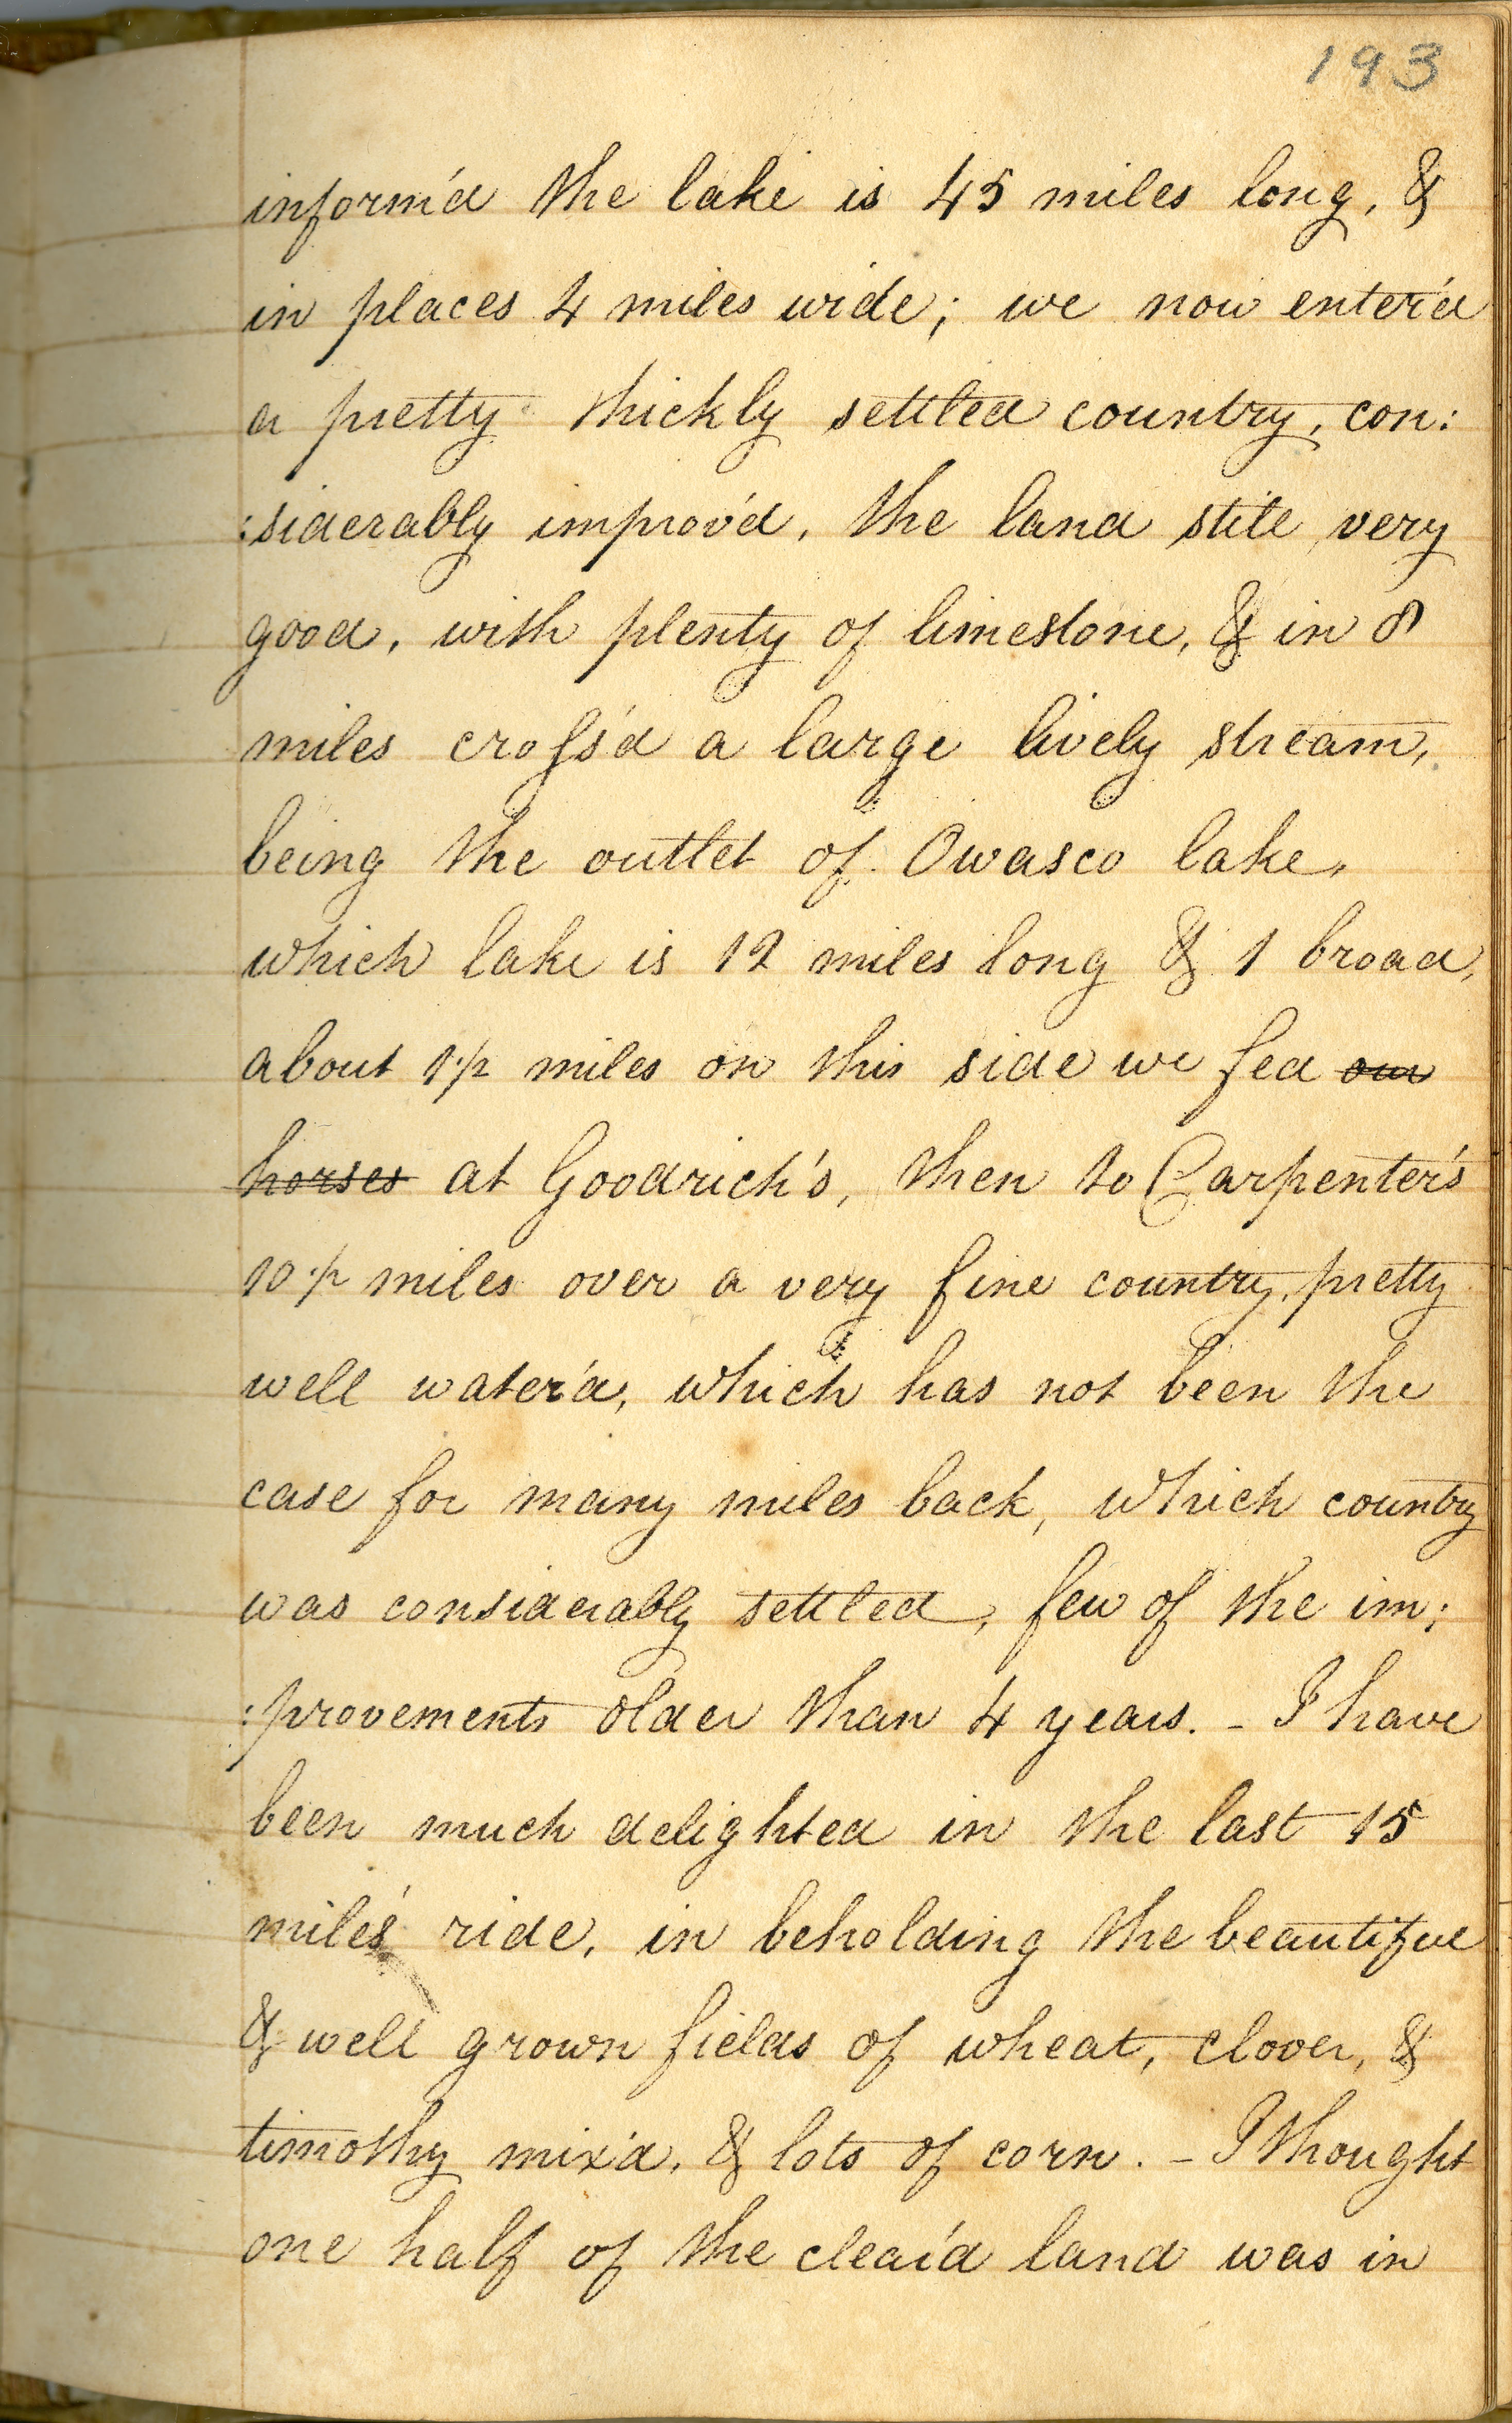 193
inform'd the lake is 45 miles long, &
in places 4 miles wide; we now enter'd
a pretty thickly settled country, con:
:siderably improv'd, the land still very
good, with plenty of limestone, & in 8
miles cross'd a large lively stream,
being the outlet of Owasco lake,
which lake is 12 miles long & 1 broad,
about 1½ miles on this side we fed our
horses at Goodrich's, then to Carpenter's
10½ miles over a very fine country, pretty
well water'd, which has not been the
case for many miles back, which country
was considerably settled, few of the im:
:provements older than 4 years. - I have
been much delighted in the last 15
miles' ride, in beholding the beautiful
& well grown fields of wheat, clover, &
timothy mix'd, & lots of corn. - I thought
one half of the clear'd land was in